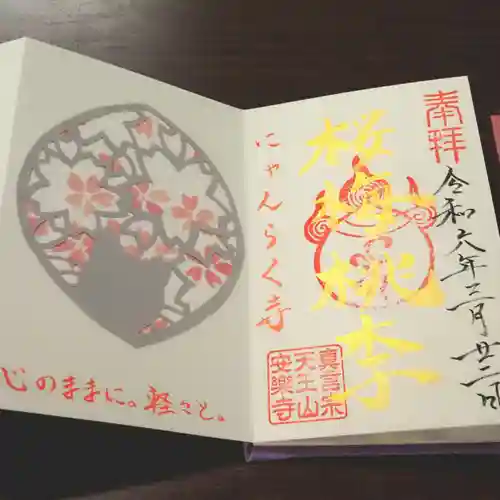 奉拝
令和六年三月廿二日
桜梅桃李
にゃんらく寺
真言宗
天王山
安樂寺
心のままに。軽々と。